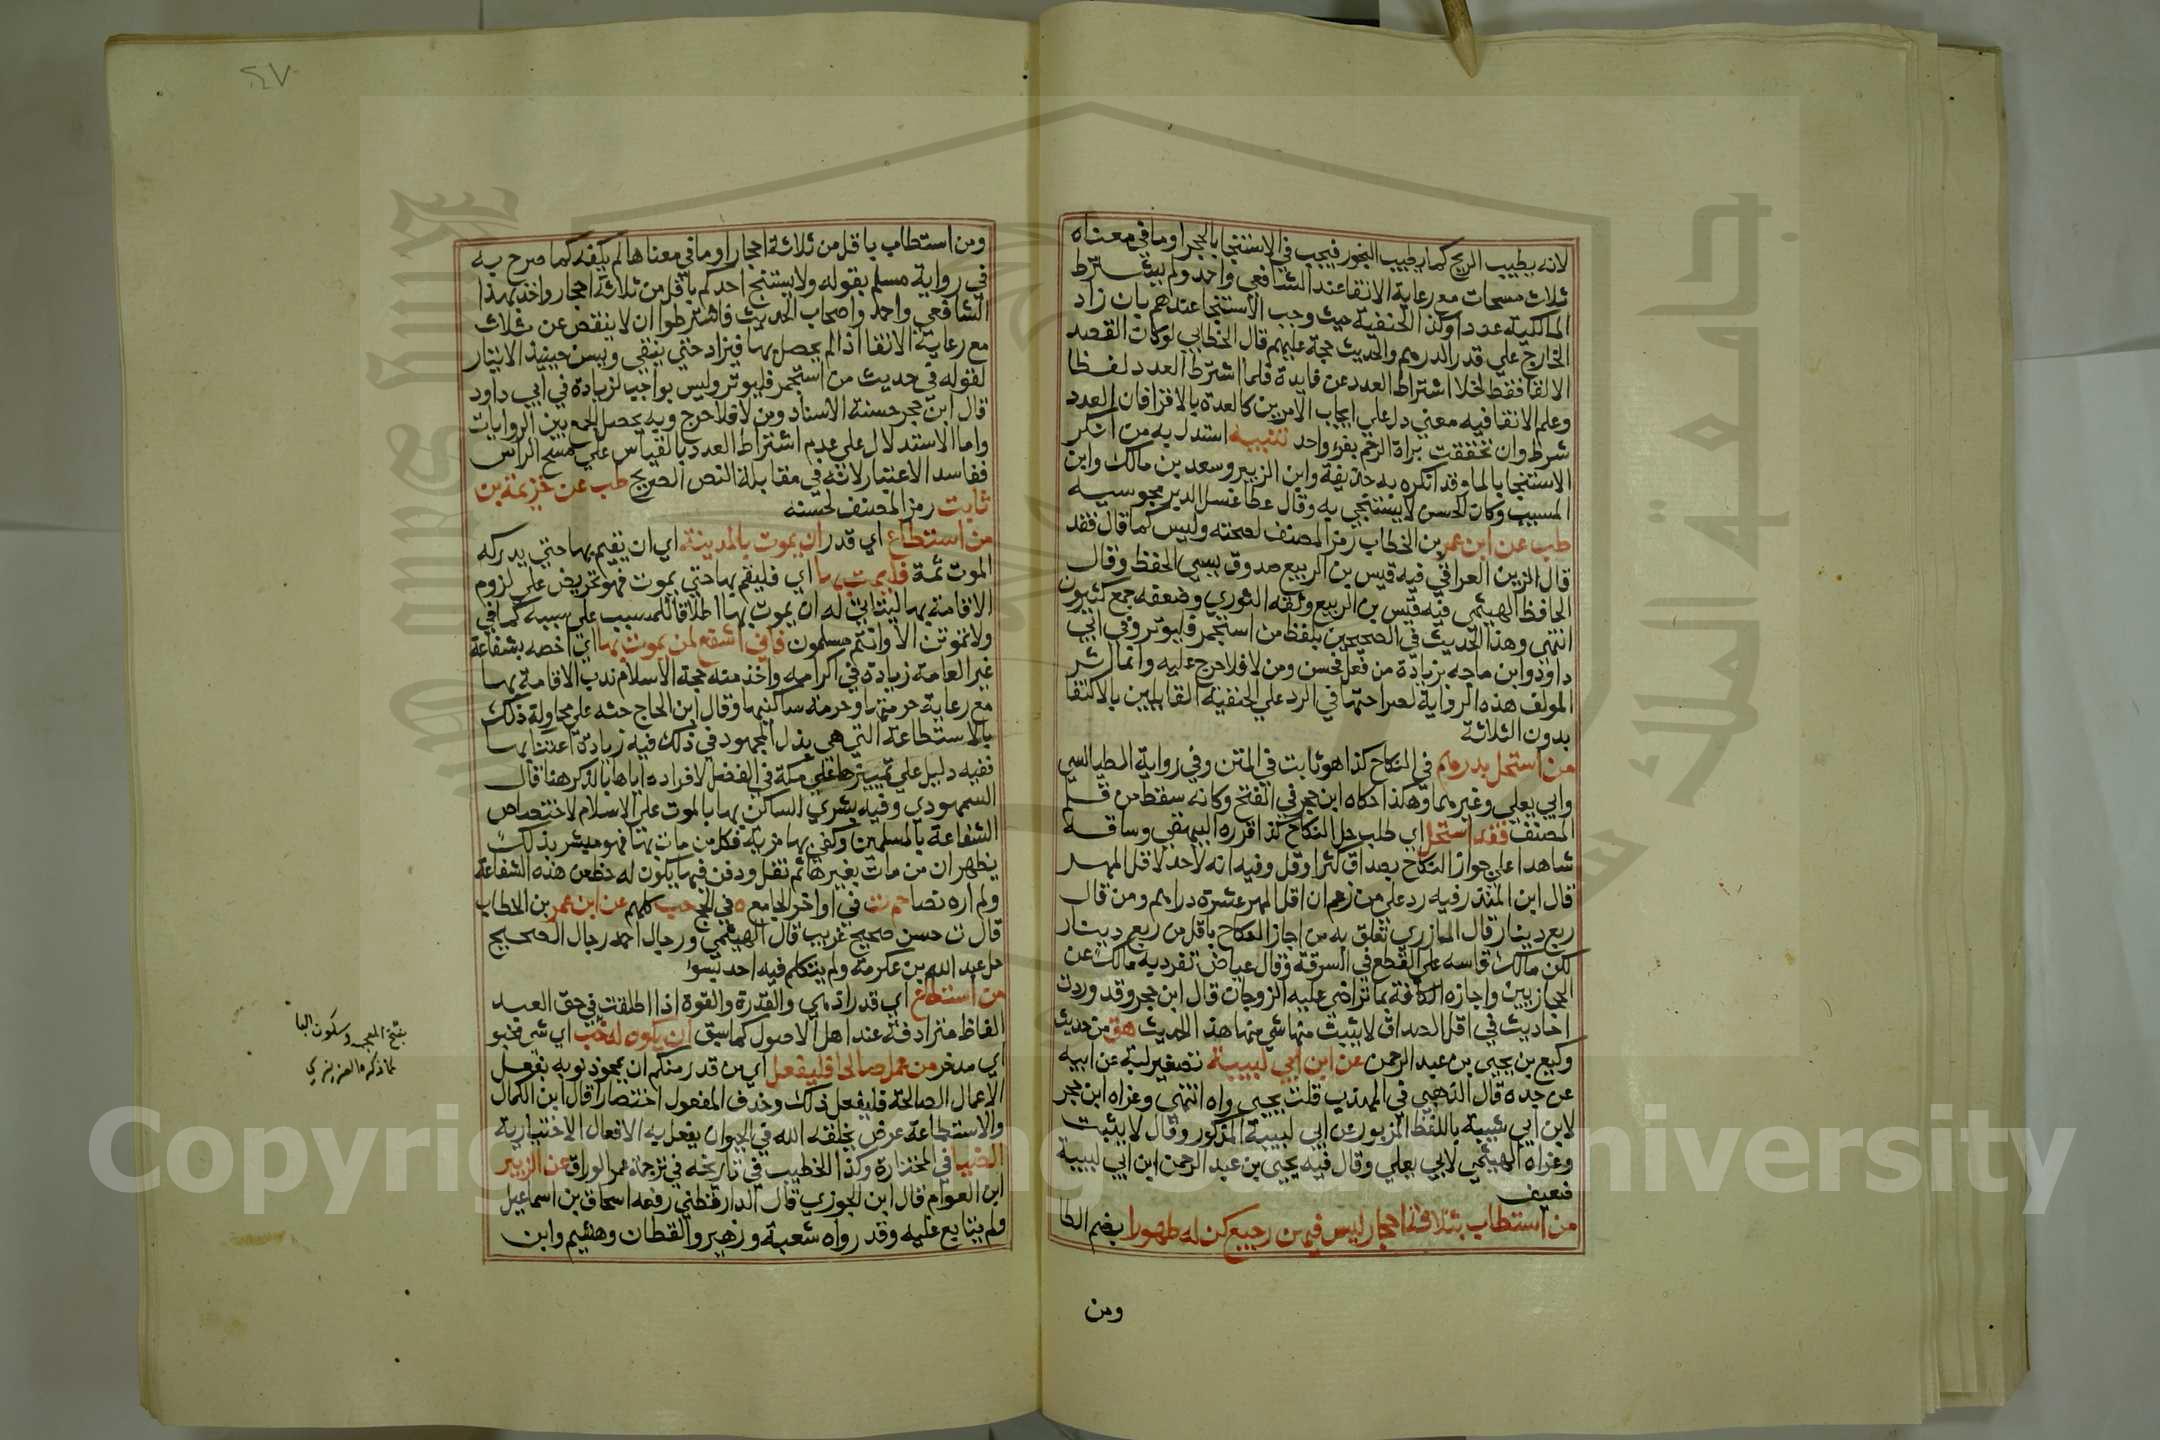 لانه يطيب الريح كما يطيب البخور فيجب في الاستنجا بالحجر او ما في معناه
ثلاث مسحات مع رعاية الانقا عند الشافعي واحمد ولم يشترط
المالكية عددا وكذا الحنفية حيث وجب الاستنجا عندهم بان زاد
الخارج على قدر الدرهم والحديث حجة عليهم قال الخطابي لو كان القصد
الانقا فقط لخلا اشتراط العدد عن فايدة فلما اشترط العدد لفظا
وعلم الانقا فيه معنى دل على ايجاب الامرين كالعدة بالاقرا فان العدد
شرط وان تحققت براة الرحم بقرء واحد تنبيه استدل به من انكر
الاستنجا بالما وقد انكره به حذيفة وابن الزبير وسعد بن مالك وابن
المسيب وكان الحسن لا يستنجي به وقال عطا غسل الدبر مجوسيه
طب عن ابن عمر بن الخطاب رمز المصنف لصحته وليس كما قال فقد
قال الزين العراقي فيه قيس بن الربيع صدوق يسيي الحفظ وقال
الحافظ الهيثمي فيه قيس بن الربيع وثقه الثوري وضعفه جمع كثيرون
انتهى وهذا الحديث في الصحيحين بلفظ من استجمر فليوتر وفي ابي
داود وابن ماجه بزيادة من فعل فحسن ومن لا فلا حرج عليه وانما اثر
المولف هذه الرواية لصراحتها في الرد علي الحنفية القايلين بالاكتفا
بدون الثلاثة
من استحل بدرهم في النكاح كذا هو ثابت في المتن وفي رواية الطيالسي
وابي يعلي وغيرهما وهكذا حكاه ابن حجر في الفتح وكانه سقط من قلم
المصنف فقد استحل اي طلب حل النكاح كذا قرره البيهقي وساقه
شاهدا على جواز النكاح بصداق كثر او قل وفيه انه لا حد لاقل المهر
قال ابن المنذر فيه رد على من زعم ان اقل المهر عشرة دراهم ومن قال
ربع دينار قال المازري تعلق به من اجاز النكاح باقل من ربع دينار
لكن مالك قاسه على القطع في السرقة وقال عياض تفرد به مالك عن
الحجازيين واجازه الكافة بما تراضى عليه الزوجان قال ابن حجر وقد وردت
احاديث في اقل الصداق لا يثبت منها شي منها هذا الحديث هق من حديث
وكيع بن يحيى بن عبد الرحمن عن ابن ابي لبيبة تصغير لبة عن ابيه
عن جده قال الذهبي في المهذب قلت يحيى واه انتهى وعزاه ابن حجر
لابن ابي شيبة باللفظ المزبور عن ابي لبيبة المذكور وقال لا يثبت
وعزاه الهيثمي لابي يعلي وقال فيه يحيى بن عبد الرحمن ابن ابي لبيبة
ضعيف
من استطاب بثلاثة احجار ليس فيهن رجيع كن له طهورا بضم الطا
ومن
٤٧
ومن استطاب باقل من ثلاثة احجار او ما في معناها لم يكفه كما صرح به
في رواية مسلم بقوله ولا يستنج احدكم باقل من ثلاثة احجار واخذ بهذا
الشافعي واحمد واصحاب الحديث فاشترطوا ان لا ينقص عن ثلاث
مع رعاية الانقا اذا لم يحصل بها فيزاد حتى ينقى ويسن حينيذ الايتار
لقوله في حديث من استجمر فليوتر وليس بواجب لزيادة في ابي داود
قال ابن حجر حسنة الاسناد ومن لا فلا حرج وبه يحصل الجمع بين الروايات
واما الاستدلال على عدم اشتراط العدد بالقياس على مسح الراس
ففاسد الاعتبار لانه في مقابلة النص الصريح طب عن خزيمة بن
ثابت رمز المصنف لحسنه
من استطاع اي قدر ان يموت بالمدينة اي ان يقيم بها حتى يدركه
الموت ثمة فليمت بها اي فليقم بها حتى يموت فهو تحريض على لزوم
الاقامة بها ليتاتى له ان يموت بها اطلاقا للمسبب على سببه كما في
ولا تموتن الا وانتم مسلمون فاني اشفع لمن يموت بها اي اخصه بشفاعة
غير العامة زيادة في اكرامه واخذ منه حجة الاسلام ندب الاقامة بها
مع رعاية حرمتها وحرمة ساكنيها وقال ابن الحاج حثه على محاولة ذلك
بالاستطاعة التي هي بذل المجهود في ذلك فيه زيادة اعتنا بها
ففيه دليل على تمييزها على مكة في الفضل لافراده اياها بالذكر هنا قال
السمهودي وفيه بشرى للساكن بها بالموت على الاسلام لاختصاص
الشفاعة بالمسلمين وكفى بها مزية فكل من مات بها فهو مبشر بذلك
يظهر ان من مات بغيرها ثم نقل ودفن فيها يكون له حظ من هذه الشفاعة
ولم اره نصا حم ت في اواخر الجامع ه في الحج حب كلهم عن ابن عمر بن الخطاب
قال ت حسن صحيح غريب قال الهيثمي ورجال احمد رجال الصحيح
خلا عبد الله بن عكرمة ولم يتكلم فيه احد بسوء
من استطاع اي قدر اذ هي والقدرة والقوة اذا اطلقت في حق العبد
الفاظ مترادفة عند اهل الاصول كما سبق ان يكون له خب اي شي مخبو
اي مدخر من عمل صالح فليفعل اي من قدر منكم ان يمحو ذنوبه بفعل
الاعمال الصالحة فليفعل ذلك وحذف المفعول اختصارا قال ابن الكمال
والاستطاعة عرض يخلقه الله في الحيوان يفعل به الافعال الاختيارية
الضيا في المختارة وكذا الخطيب في تاريخه في ترجمة عمر الوراق عن الزبير
ابن العوام قال ابن الجوزي قال الدارقطني رفعه اسحاق بن اسماعيل
ولم يتابع عليه وقد رواه شعبة وزهير والقطان وهشيم وابن
بفتح المعجمه وسكون البا
كما ذكره العزيزي